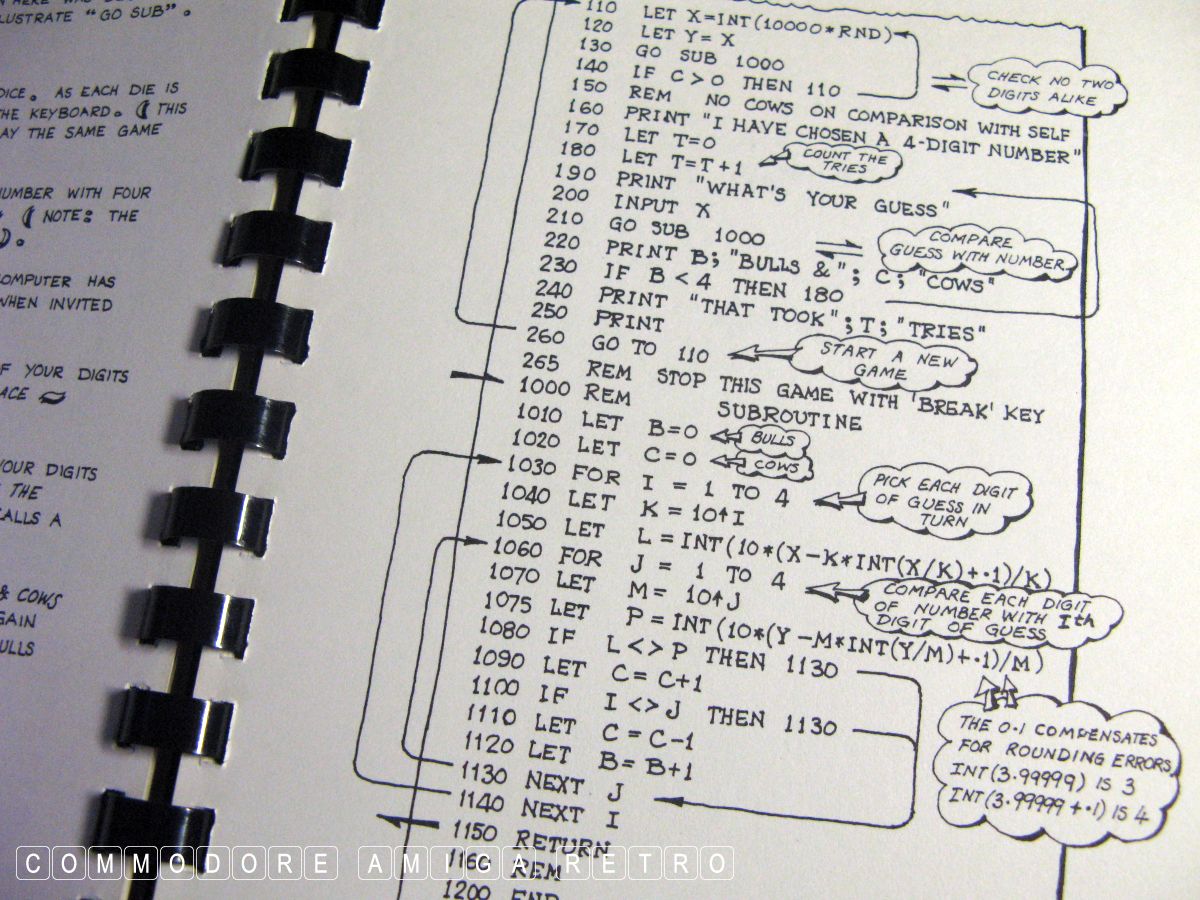 LUSTRATE "GO SUB".
DICE. AS EACH DIE IS
THE KEYBOARD. ( THIS
AY THE SAME GAME
NUMBER WITH FOUR
( NOTE: THE
).
COMPUTER HAS
WHEN INVITED
F YOUR DIGITS
ACE
YOUR DIGITS
THE
ALLS A
& COWS
GAIN
ULLS
110 LET X=INT(10000*RND)
120 LET Y= X
130 GO SUB 1000
140 IF C>0 THEN 110
CHECK NO TWO
DIGITS ALIKE
150 REM NO COWS ON COMPARISON WITH SELF
160 PRINT "I HAVE CHOSEN A 4-DIGIT NUMBER"
170 LET T=0
180 LET T=T+1
COUNT THE
TRIES
190 PRINT "WHAT'S YOUR GUESS"
200 INPUT X
210 GO SUB 1000
COMPARE
GUESS WITH NUMBER
220 PRINT B; "BULLS &"; C; "COWS"
230 IF B<4 THEN 180
240 PRINT "THAT TOOK"; T; "TRIES"
250 PRINT
260 GO TO 110
START A NEW
GAME
265 REM STOP THIS GAME WITH 'BREAK' KEY
1000 REM SUBROUTINE
1010 LET B=0
BULLS
1020 LET C=0
COWS
1030 FOR I = 1 TO 4
PICK EACH DIGIT
OF GUESS IN
TURN
1040 LET K = 10↑I
1050 LET L = INT(10*(X-K*INT(X/K)+·1)/K)
1060 FOR J = 1 TO 4
COMPARE EACH DIGIT
OF NUMBER WITH Ith
DIGIT OF GUESS
1070 LET M= 10↑J
1075 LET P = INT(10*(Y-M*INT(Y/M)+·1)/M)
1080 IF L<>P THEN 1130
1090 LET C= C+1
1100 IF I<>J THEN 1130
1110 LET C=C-1
1120 LET B= B+1
1130 NEXT J
1140 NEXT I
THE 0·1 COMPENSATES
FOR ROUNDING ERRORS
INT(3·99999) IS 3
INT(3·99999+·1) IS 4
1150 RETURN
1160 REM
1200 END
COMMODORE AMIGA RETRO